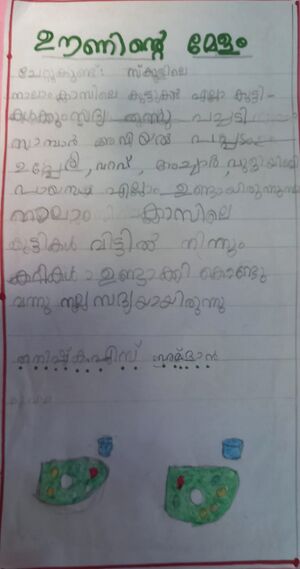 ഊണിന്റെ മേളം
ചേറ്റുകുണ്ട്: സ്കൂളിലെ
നാലാം ക്ലാസിലെ കുട്ടികൾ എല്ലാ കുട്ടി-
കൾക്കും സദ്യ തന്നു പച്ചടി
സാമ്പാർ അവിയൽ പപ്പടം
ഉപ്പേരി, വറവ്, അച്ചാർ, പുളിയിഞ്ചി
പായസം എല്ലാം ഉണ്ടായിരുന്നു
നാലാം ക്ലാസിലെ
കുട്ടികൾ വീട്ടിൽ നിന്നും
കറികൾ ഉണ്ടാക്കി കൊണ്ടു
വന്നു നല്ല സദ്യയായിരുന്നു